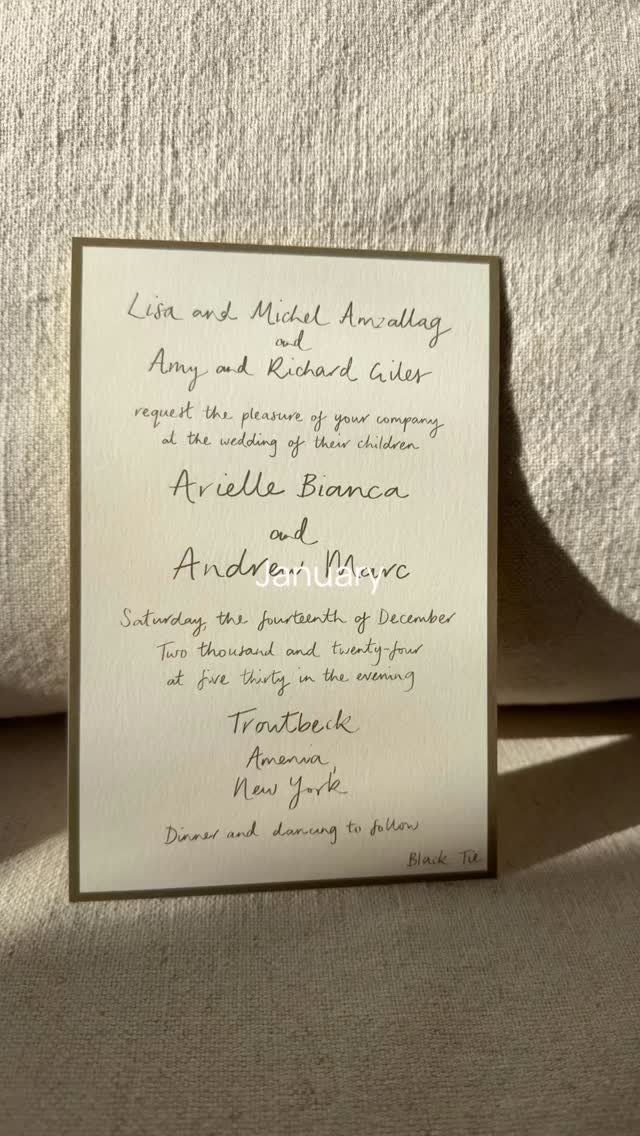 Lisa and Michel Amzallag
and
Amy and Richard Giles
request the pleasure of your company
at the wedding of their children
Arielle Bianca
and
Andrew Marc
January
Saturday, the fourteenth of December
Two thousand and twenty-four
at five thirty in the evening
Troutbeck
Amenia,
New York
Dinner and dancing to follow
Black Tie